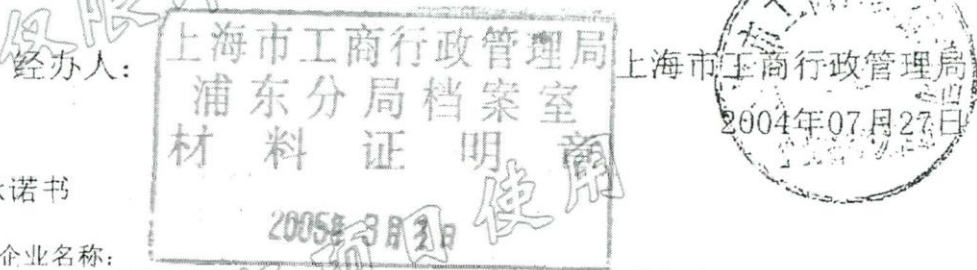 仅限
经办人：
上海市工商行政管理局
浦东分局档案室
材料证明章
2005年3月2日
上海市工商行政管理局
2004年07月27日
诺书
企业名称：
项目使用